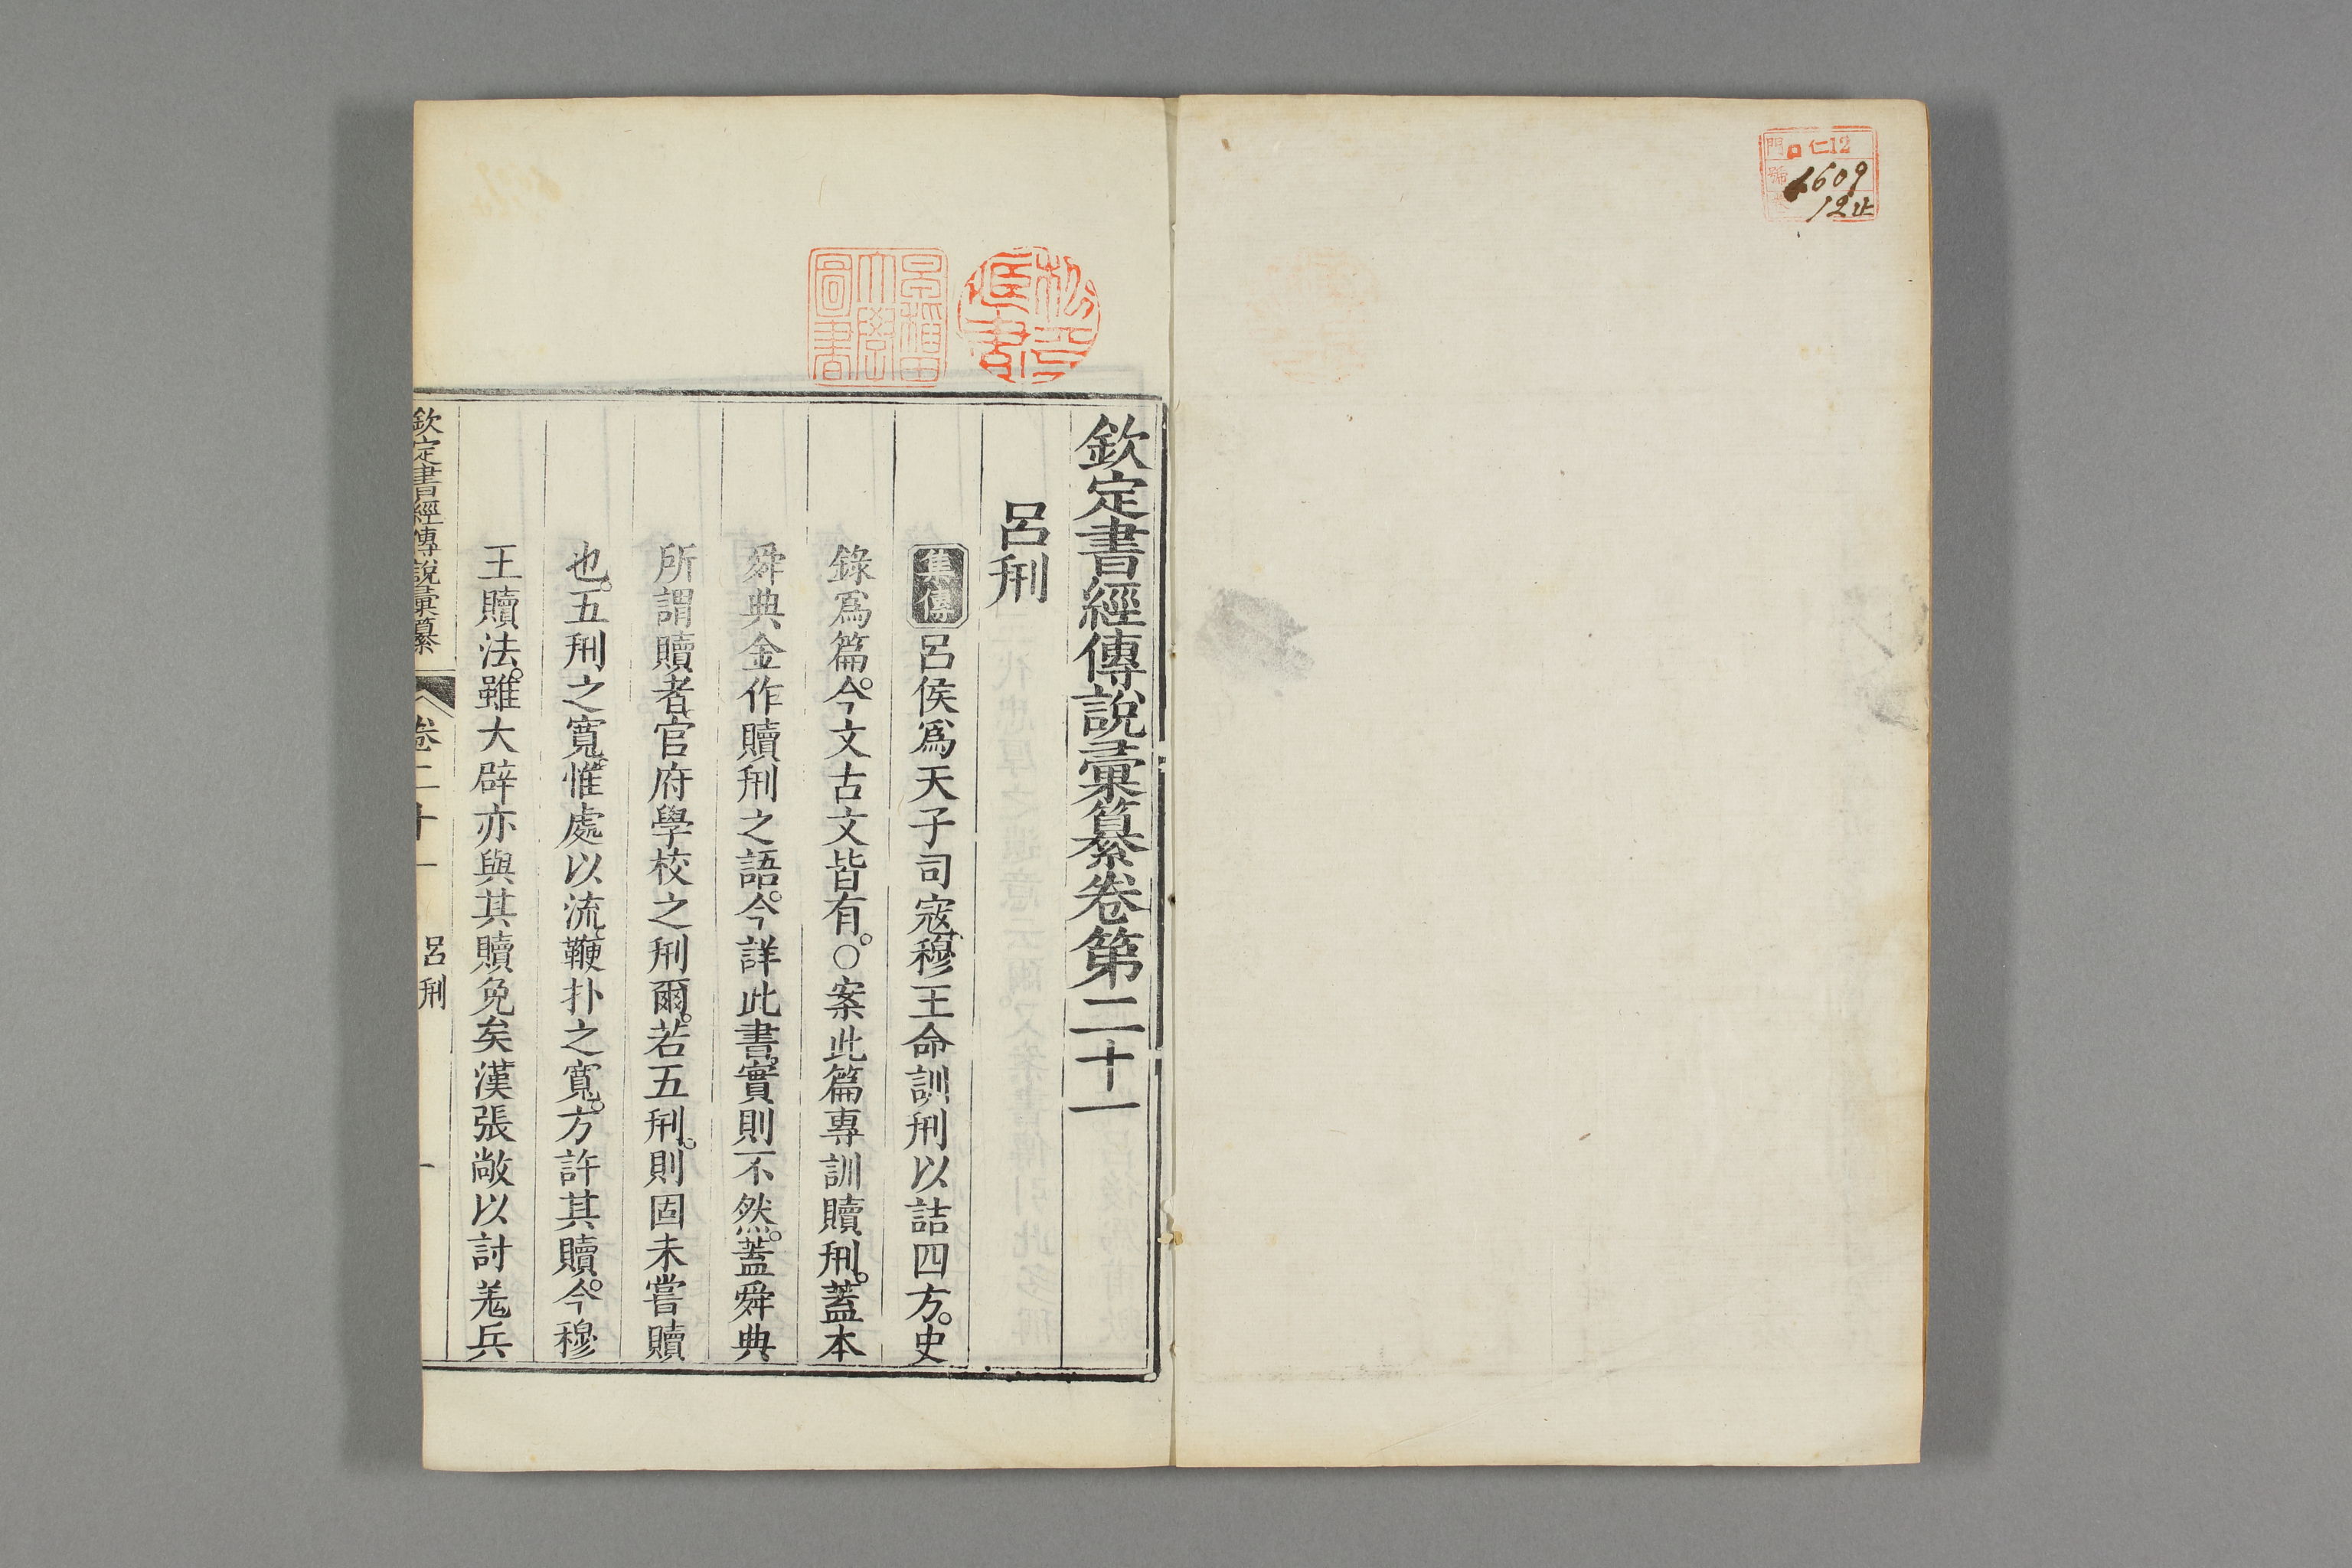 門 仁12
號 1609
12止
松平
藏書
早稻田
大學
圖書
欽定書經傳說彙纂卷第二十一
呂𠛬
集傳 呂侯爲天子司寇、穆王命訓𠛬以詰四方。史
錄爲篇。今文古文皆有。○案此篇專訓贖𠛬。蓋本
舜典金作贖𠛬之語。今詳此書、實則不然。蓋舜典
所謂贖者、官府學校之𠛬爾。若五𠛬。則固未嘗贖
也。五𠛬之寬、惟處以流、鞭扑之寬。方許其贖。今穆
王贖法。雖大辟亦與其贖免矣漢張敞以討羌兵
欽定書經傳說彙纂 卷二十一 呂𠛬 一